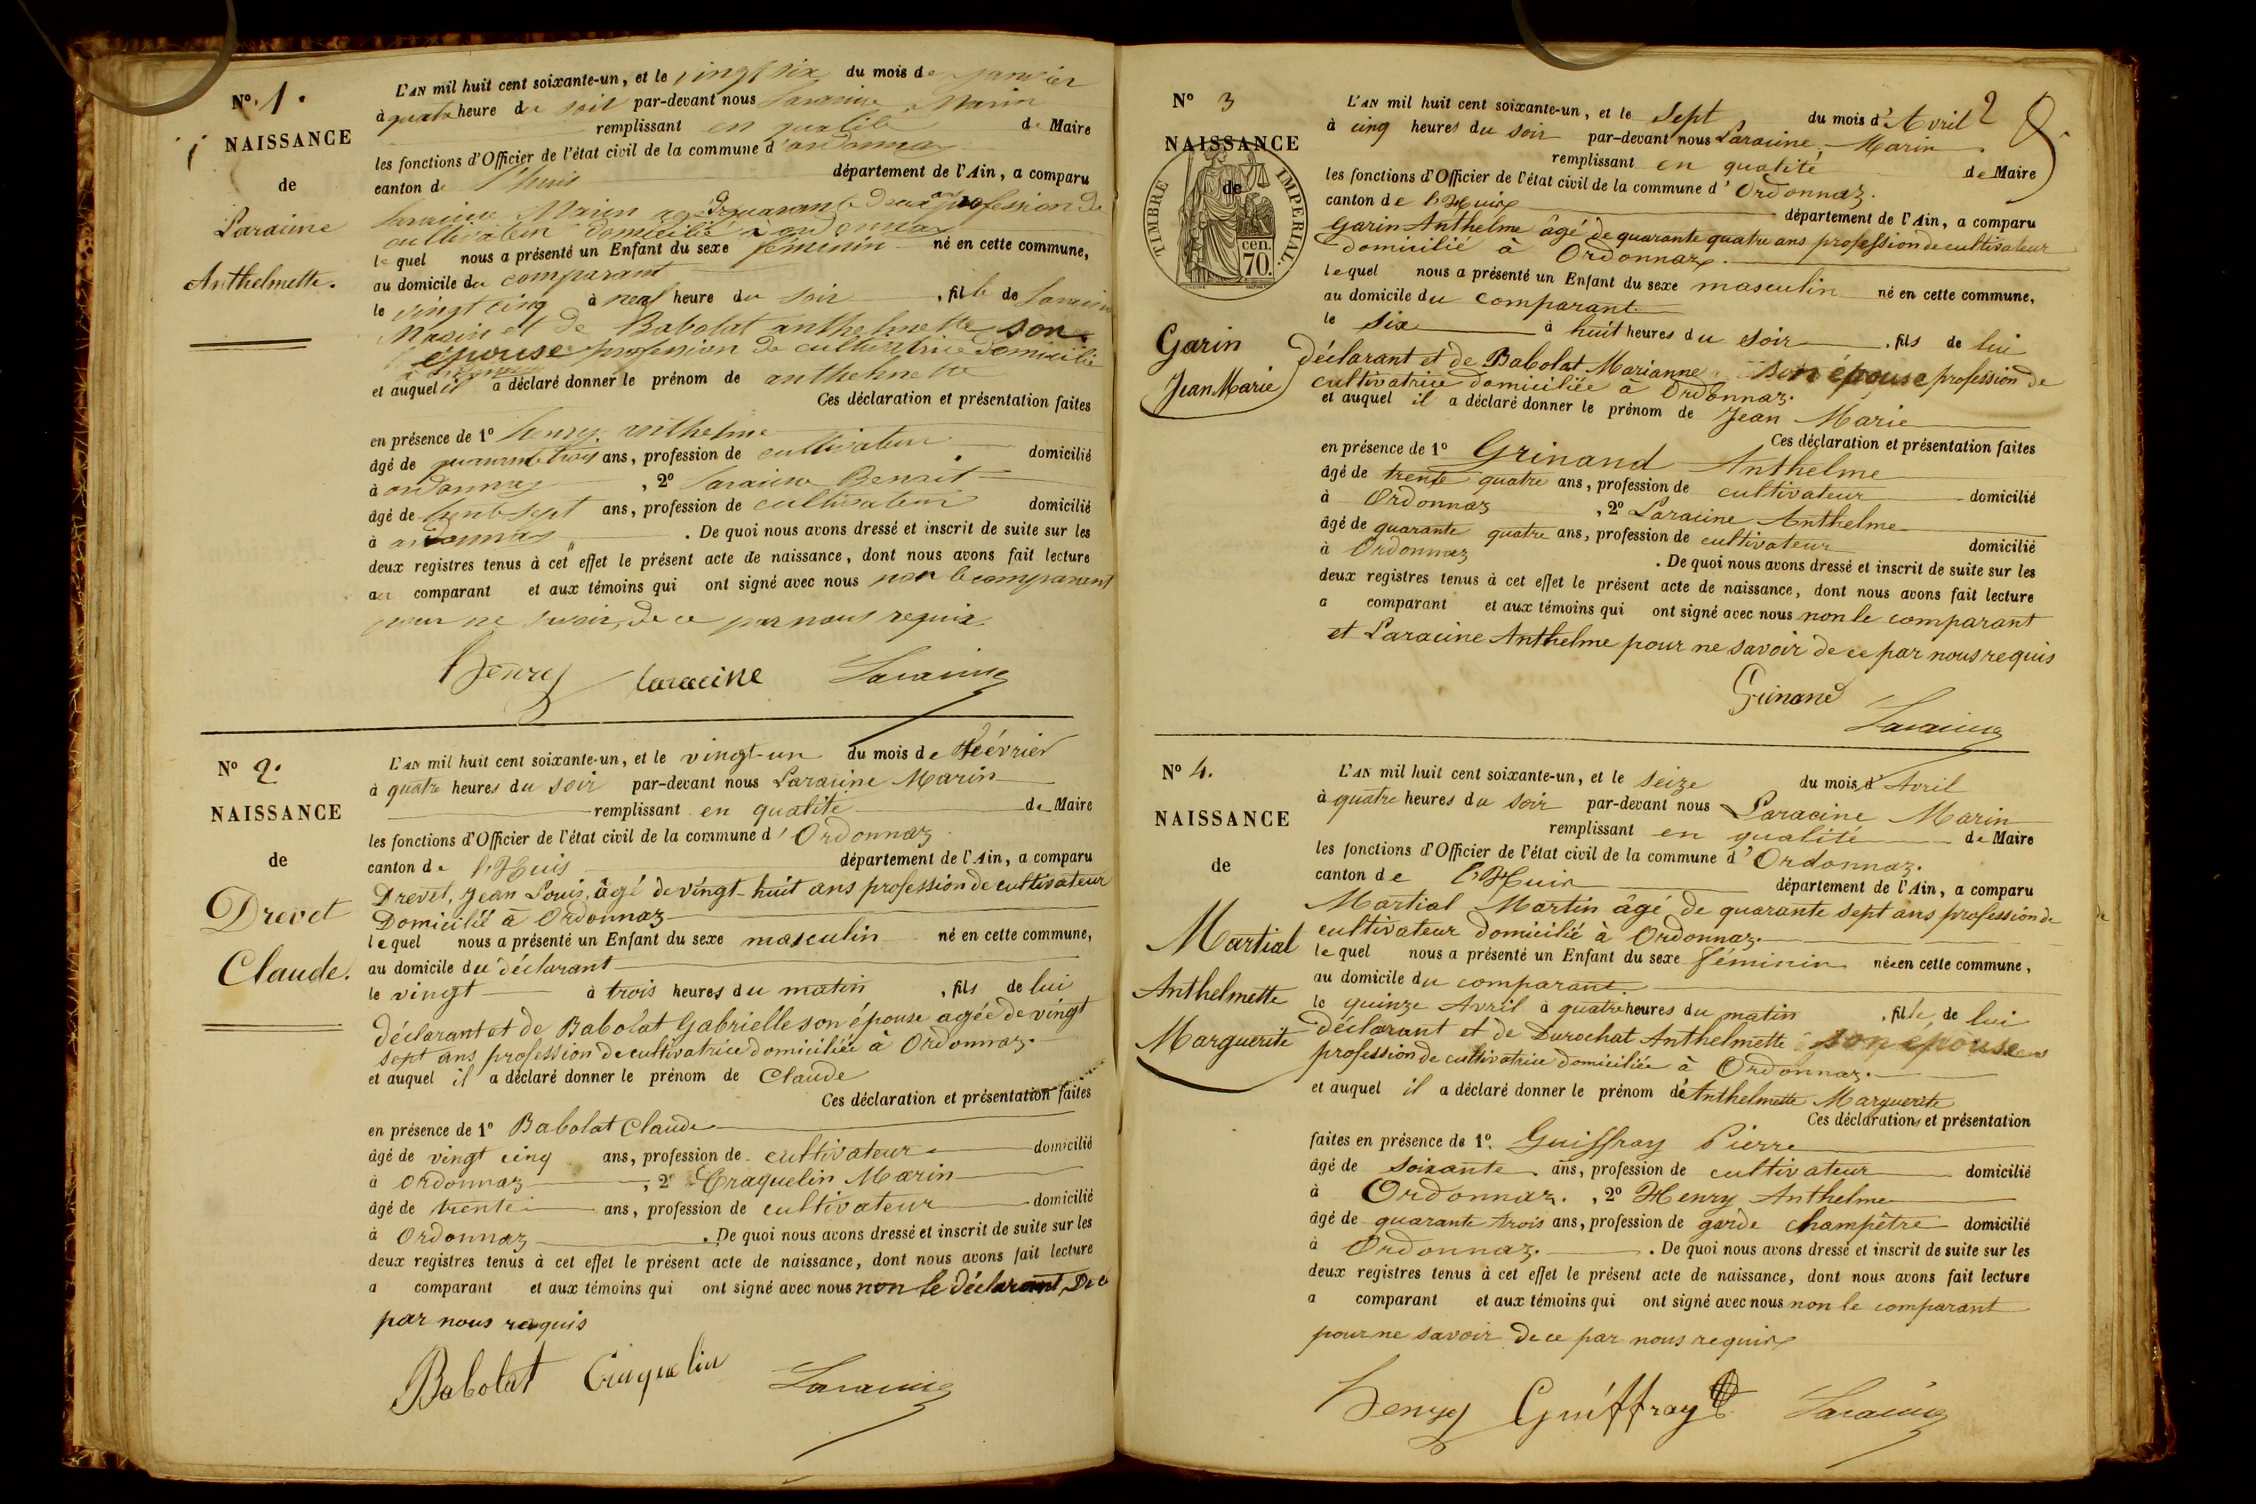 N° 1.
NAISSANCE
de
Laracine
Anthelmette.
L'AN mil huit cent soixante-un, et le vingt six du mois de janvier
à quatre heure du soir par-devant nous Laracine Marin
remplissant en qualité de Maire
les fonctions d'Officier de l'état civil de la commune d'ordonnaz
canton de l'huis département de l'Ain, a comparu
Laracine Marin agé quarante deux ans profession de
cultivateur domicilié à ordonnaz
lequel nous a présenté un Enfant du sexe féminin né en cette commune,
au domicile du comparant
le vingt cinq à neuf heure du soir, fille de Laracine
Marin et de Babolat anthelmette son
épouse profession de cultivatrice domiciliée
à ordonnaz
et auquel il a déclaré donner le prénom de anthelmette
Ces déclaration et présentation faites
en présence de 1° henry anthelme
âgé de quarante trois ans, profession de cultivateur domicilié
à ordonnaz, 2° Laracine Benoit
âgé de trente sept ans, profession de cultivateur domicilié
à ordonnaz. De quoi nous avons dressé et inscrit de suite sur les
deux registres tenus à cet effet le présent acte de naissance, dont nous avons fait lecture
au comparant et aux témoins qui ont signé avec nous non le comparant
pour ne savoir, de ce par nous requis
henry Laracine Laracine
N° 2.
NAISSANCE
de
Drevet
Claude.
L'AN mil huit cent soixante-un, et le vingt-un du mois de Février
à quatre heures du soir par-devant nous Laracine Marin
remplissant en qualité de Maire
les fonctions d'Officier de l'état civil de la commune d'Ordonnaz
canton de l'Huis département de l'Ain, a comparu
Drevet, Jean Louis, âgé de vingt huit ans profession de cultivateur
Domicilié à Ordonnaz
lequel nous a présenté un Enfant du sexe masculin né en cette commune,
au domicile du déclarant
le vingt à trois heures du matin, fils de lui
déclarant et de Babolat Gabrielle son épouse agée de vingt
sept ans profession de cultivatrice domiciliée à Ordonnaz.
et auquel il a déclaré donner le prénom de Claude
Ces déclaration et présentation faites
en présence de 1° Babolat Claude
âgé de vingt cinq ans, profession de cultivateur domicilié
à Ordonnaz, 2° Craquelin Marin
âgé de trente ans, profession de cultivateur domicilié
à Ordonnaz. De quoi nous avons dressé et inscrit de suite sur les
deux registres tenus à cet effet le présent acte de naissance, dont nous avons fait lecture
a comparant et aux témoins qui ont signé avec nous non le déclarant De ce
par nous requis
Babolat Craquelin Laracine
2
N° 3
NAISSANCE
de
TIMBRE IMPERIAL.
cen.
70.
Garin
Jean Marie
L'AN mil huit cent soixante-un, et le sept du mois d'Avril
à cinq heures du soir par-devant nous Laracine, Marin
remplissant en qualité de Maire
les fonctions d'Officier de l'état civil de la commune d'Ordonnaz.
canton de l'Huis département de l'Ain, a comparu
Garin Anthelme âgé de quarante quatre ans profession de cultivateur
domicilié à Ordonnaz.
lequel nous a présenté un Enfant du sexe masculin né en cette commune,
au domicile du comparant
le six à huit heures du soir, fils de lui
déclarant et de Babolat Marianne son épouse profession de
cultivatrice domiciliée à Ordonnaz.
et auquel il a déclaré donner le prénom de Jean Marie
Ces déclaration et présentation faites
en présence de 1° Grinand Anthelme
âgé de trente quatre ans, profession de cultivateur domicilié
à Ordonnaz, 2° Laracine Anthelme
âgé de quarante quatre ans, profession de cultivateur domicilié
à Ordonnaz. De quoi nous avons dressé et inscrit de suite sur les
deux registres tenus à cet effet le présent acte de naissance, dont nous avons fait lecture
a comparant et aux témoins qui ont signé avec nous non le comparant
et Laracine Anthelme pour ne savoir de ce par nous requis
Grinand
Laracine
N° 4.
NAISSANCE
de
Martial
Anthelmette
Marguerite
L'AN mil huit cent soixante-un, et le seize du mois d'Avril
à quatre heures du soir par-devant nous Laracine Marin
remplissant en qualité de Maire
les fonctions d'Officier de l'état civil de la commune d'Ordonnaz.
canton de l'Huis département de l'Ain, a comparu
Martial Martin âgé de quarante sept ans profession de
cultivateur domicilié à Ordonnaz.
lequel nous a présenté un Enfant du sexe féminin née en cette commune,
au domicile du comparant.
le quinze Avril à quatre heures du matin, fille de lui
déclarant et de Durochat Anthelmette son épouse
profession de cultivatrice domiciliée à Ordonnaz.
et auquel il a déclaré donner le prénom de Anthelmette Marguerite
Ces déclarations et présentation
faites en présence de 1°. Guiffray Pierre
âgé de soixante ans, profession de cultivateur domicilié
à Ordonnaz., 2° Henry Anthelme
âgé de quarante trois ans, profession de garde champêtre domicilié
à Ordonnaz. De quoi nous avons dressé et inscrit de suite sur les
deux registres tenus à cet effet le présent acte de naissance, dont nous avons fait lecture
a comparant et aux témoins qui ont signé avec nous non le comparant
pour ne savoir de ce par nous requis
henry Guiffray Laracine